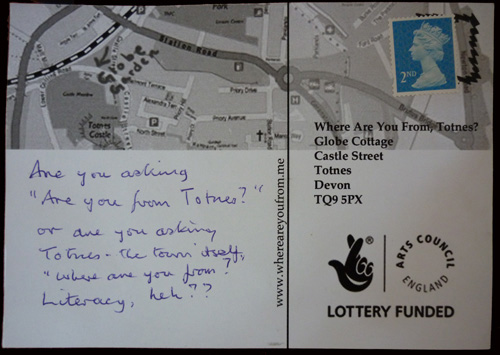 Station Road
Globe
Castle Meadow
Totnes
Castle
Alexandra Terr
Priory Drive
Priory Avenue
North Street
2ND
Are you asking
"Are you from Totnes?"
or are you asking
Totnes - the town itself,
"where are you from?
Literacy, heh??
www.whereareyoufrom.me
Where Are You From, Totnes?
Globe Cottage
Castle Street
Totnes
Devon
TQ9 5PX
ARTS COUNCIL
ENGLAND
LOTTERY FUNDED